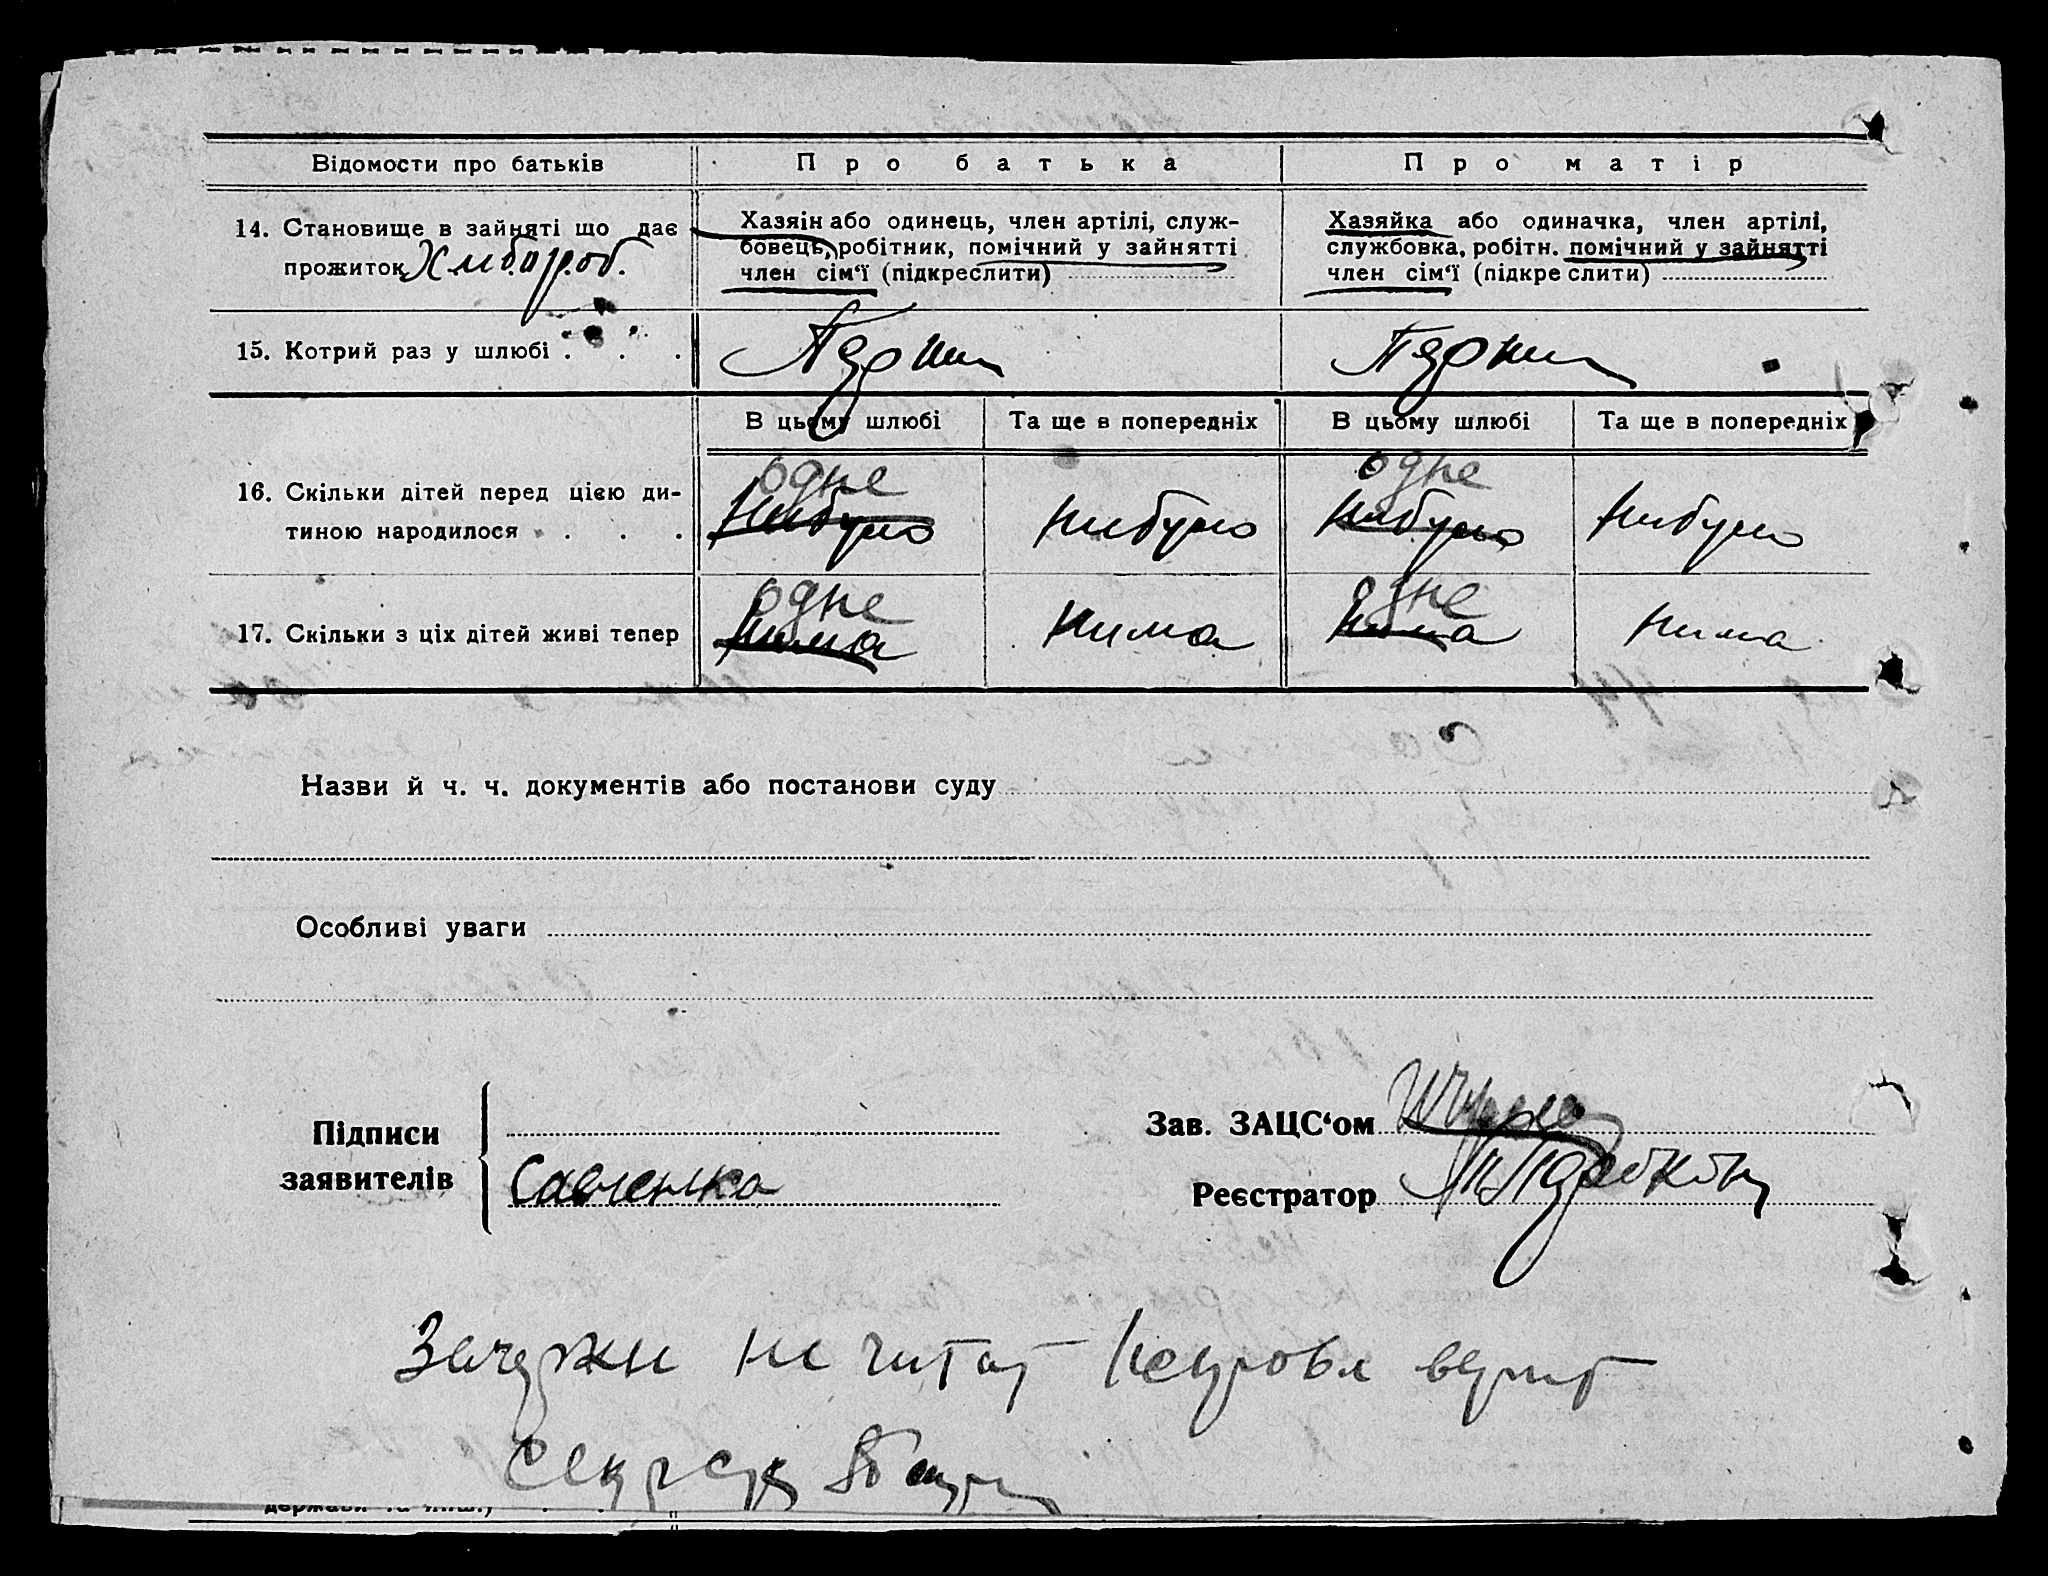 Відомости про батьків
Про батька
Про матір
14. Становище в зайняті що дає
прожиток Хлибороб.
Хазяін або одинець, член артілі, служ-
бовець, робітник, помічний у зайнятті
член сім‘ї (підкреслити)
Хазяйка або одиначка, член артілі,
службовка, робітн. помічний у зайнятті
член сім‘ї (підкреслити)
15. Котрий раз у шлюбі . . .
Перший
Перший
В цьому шлюбі
Та ще в попередніх
В цьому шлюбі
Та ще в попередніх
16. Скільки дітей перед цією ди-
тиною народилося . . .
одне
нибуло
нибуло
одне
нибуло
нибуло
17. Скільки з ціх дітей живі тепер
одне
нима
нима
одне
нима
нима
Назви й ч. ч. документів або постанови суду
Особливі уваги
Підписи
заявителів
Савченко
Зав. ЗАЦС‘ом
Реєстратор
не
держави та инш.)